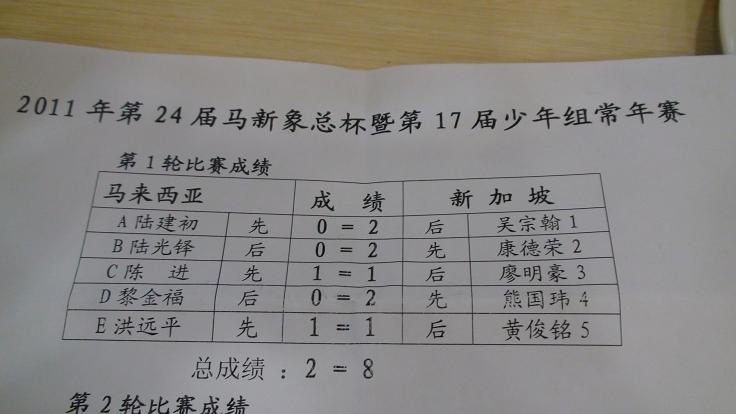 2011年第24届马新象总杯暨第17届少年组常年赛
第1轮比赛成绩
马来西亚 成 绩 新 加 坡
A陆建初 先 0 = 2 后 吴宗翰1
B陆光铎 后 0 = 2 先 康德荣2
C陈 进 先 1 = 1 后 廖明豪3
D黎金福 后 0 = 2 先 熊国玮4
E洪远平 先 1 = 1 后 黄俊铭5
总成绩 : 2 = 8
第2轮比赛成绩